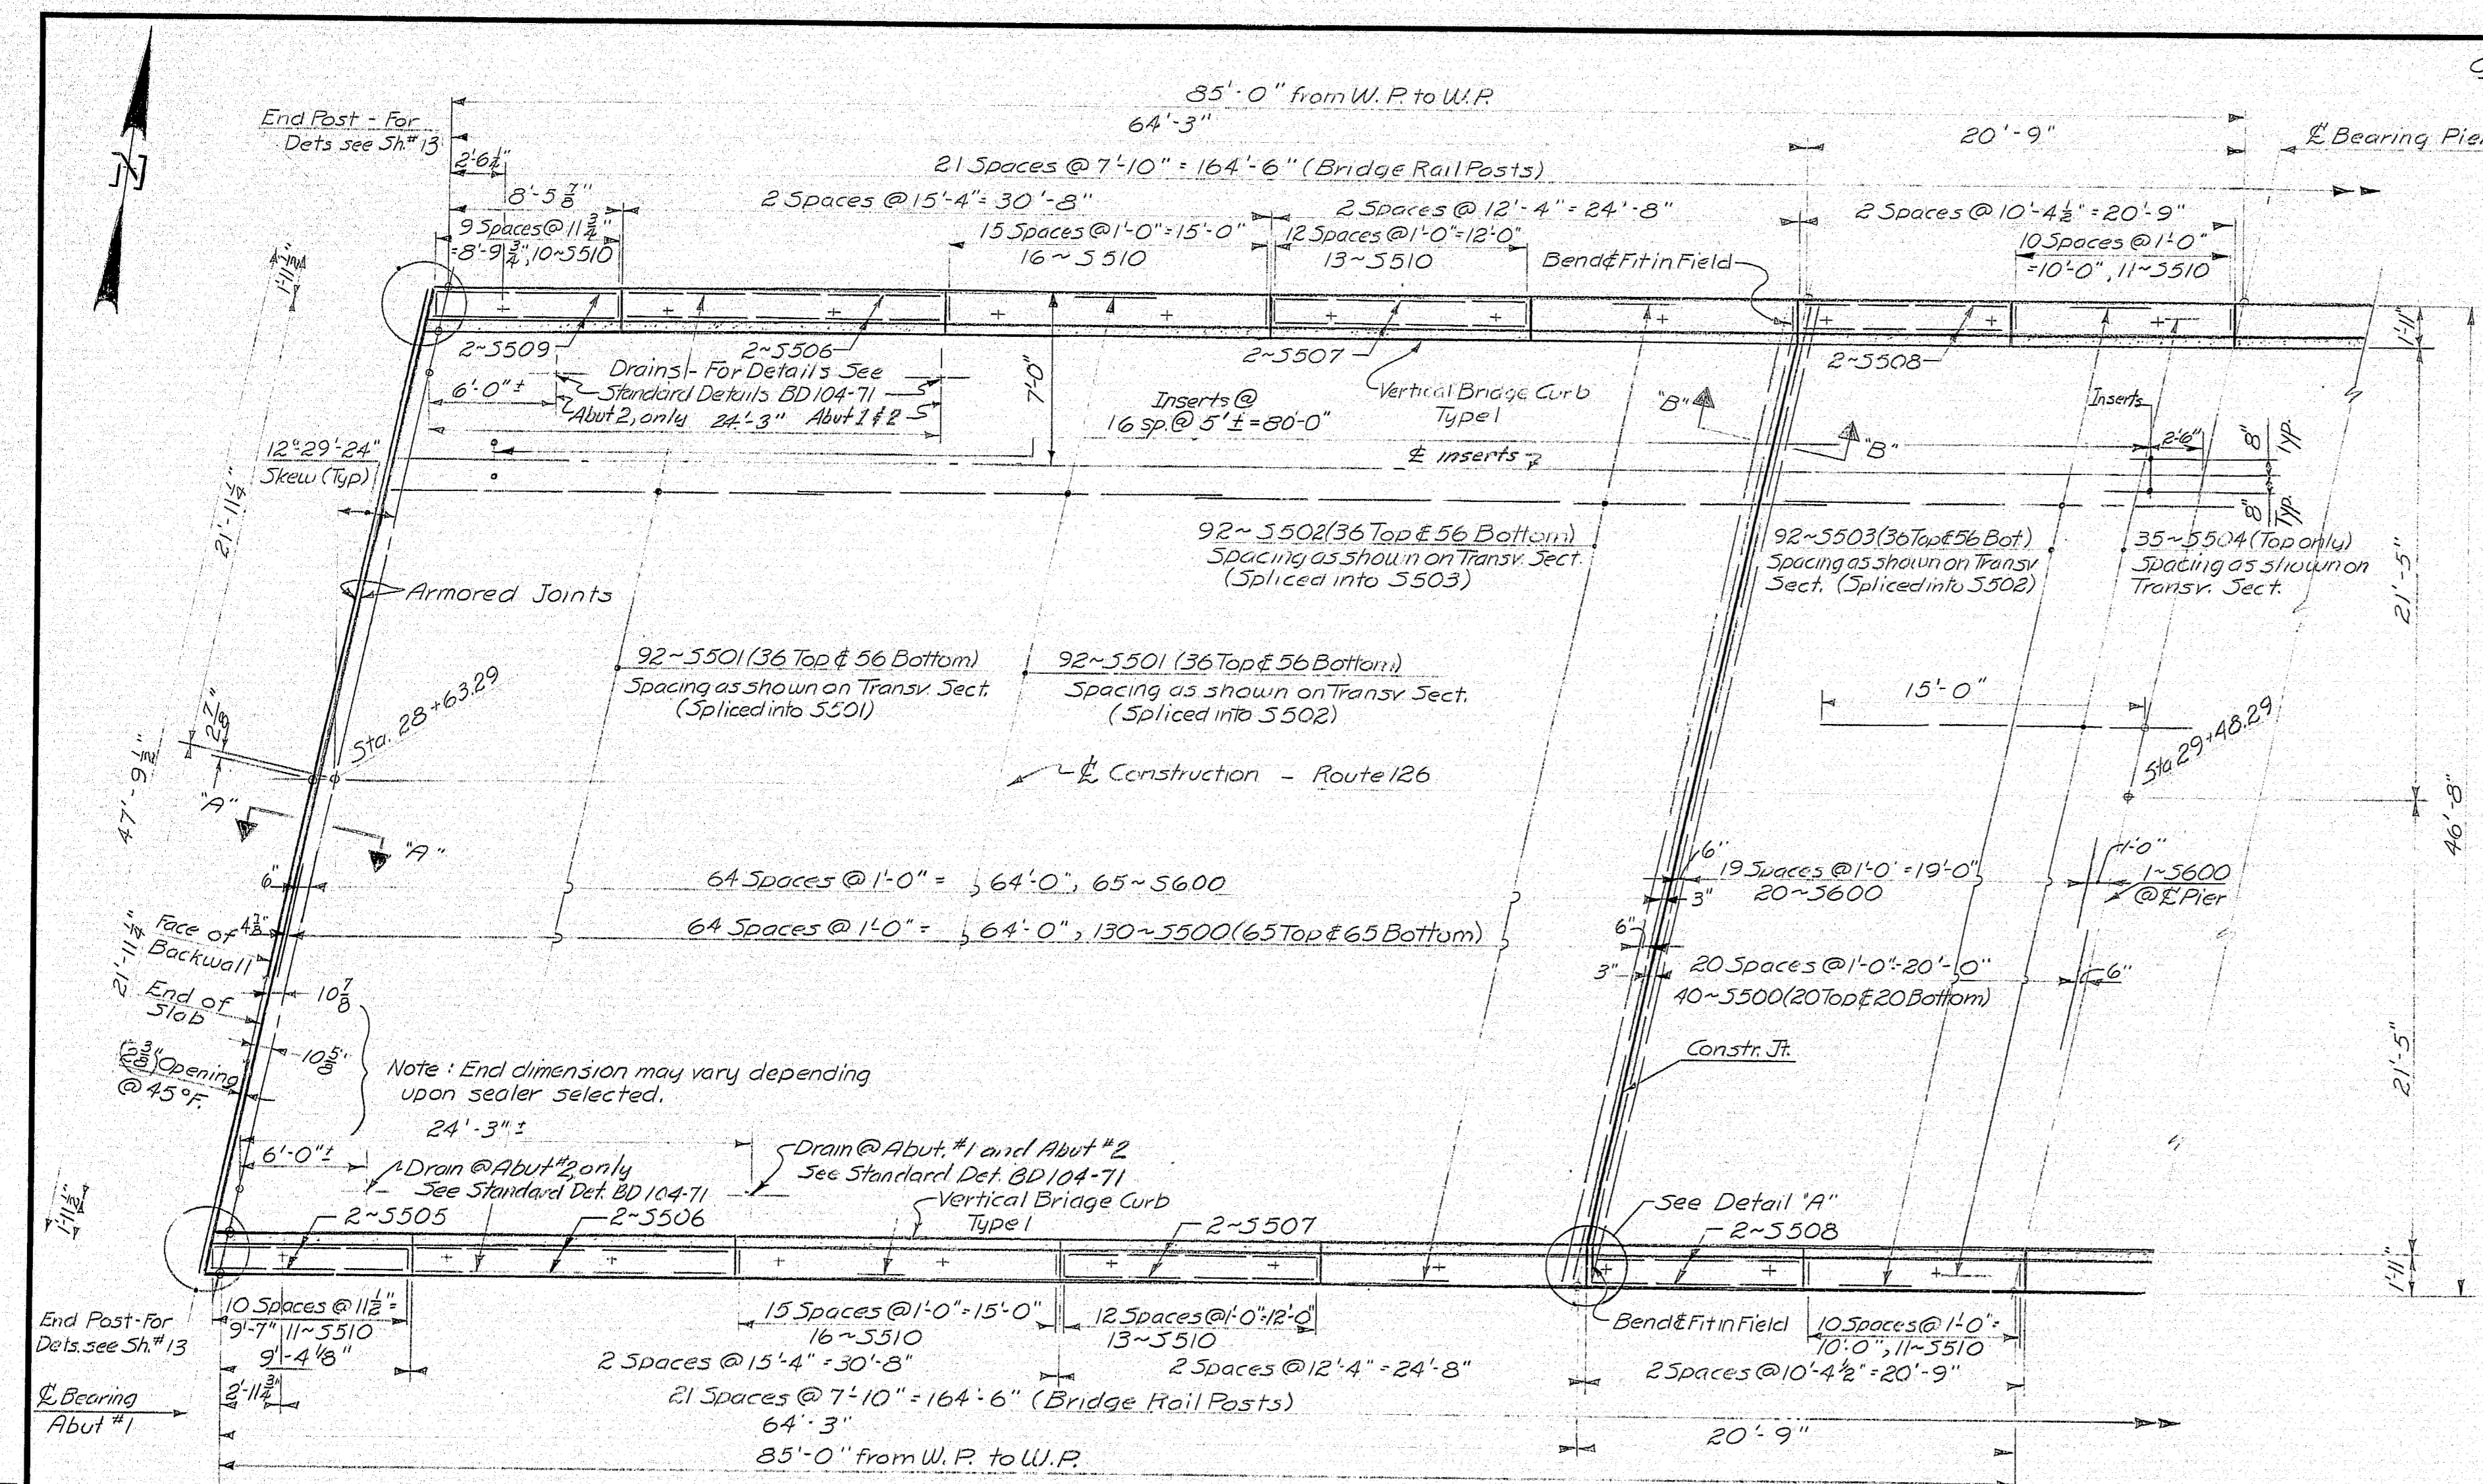 85'-0" from W.P. to W.P.
64'-3"
20'-9"
End Post - For
Dets see Sh.#13
℄ Bearing Pie
2'-6¼"
21 Spaces @ 7'-10" = 164'-6" (Bridge Rail Posts)
8'-5⅞"
2 Spaces @ 15'-4" = 30'-8"
2 Spaces @ 12'-4" = 24'-8"
2 Spaces @ 10'-4½" = 20'-9"
9 Spaces @ 11¾"
=8'-9¾", 10~S510
15 Spaces @ 1'-0" = 15'-0"
16~S510
12 Spaces @ 1'-0" = 12'-0"
13~S510
Bend & Fit in Field
10 Spaces @ 1'-0"
=10'-0", 11~S510
1'-11½"
1'-11"
2~S509
2~S506
2~S507
2~S508
Drains - For Details See
Standard Details BD 104-71
6'-0"±
Abut 2, only
24'-3" Abut 1 & 2
7'-0"
Inserts @
16 sp. @ 5'± = 80'-0"
Vertical Bridge Curb
Type 1
"B"
"B"
Inserts
2'-6"
8"
Typ.
8"
Typ.
℄ inserts
12°-29'-24"
Skew (Typ)
21'-11¼"
92~S502 (36 Top & 56 Bottom)
Spacing as shown on Transv. Sect.
(Spliced into S503)
92~S503 (36 Top & 56 Bot)
Spacing as shown on Transv
Sect. (Spliced into S502)
35~S504 (Top only)
Spacing as shown on
Transv. Sect.
21'-5"
Armored Joints
92~S501 (36 Top & 56 Bottom)
Spacing as shown on Transv. Sect.
(Spliced into S501)
92~S501 (36 Top & 56 Bottom)
Spacing as shown on Transv. Sect.
(Spliced into S502)
15'-0"
2⅞"
Sta. 28+63.29
Sta 29+48.29
47'-9½"
℄ Construction - Route 126
"A"
"A"
46'-8"
6"
64 Spaces @ 1'-0" = 64'-0", 65~S600
6"
19 Spaces @ 1'-0" = 19'-0"
3"
20~S600
1'-0"
1~S600
@ ℄ Pier
Face of
Backwall
4⅞"
64 Spaces @ 1'-0" = 64'-0", 130~S500 (65 Top & 65 Bottom)
6"
3"
20 Spaces @ 1'-0" = 20'-0"
40~S500 (20 Top & 20 Bottom)
6"
21'-11¼"
End of
Slab
10⅞
10⅝"
Constr. Jt.
21'-5"
(2⅜") Opening
@ 45°F.
Note : End dimension may vary depending
upon sealer selected.
24'-3"±
6'-0"±
Drain @ Abut #2, only
See Standard Det. BD 104-71
Drain @ Abut. #1 and Abut #2
See Standard Det. BD 104-71
Vertical Bridge Curb
Type 1
See Detail "A"
1'-11½"
2~S505
2~S506
2~S507
2~S508
1'-11"
End Post-For
Dets. see Sh.#13
10 Spaces @ 11½" =
9'-7" 11~S510
9'-4⅛"
15 Spaces @ 1'-0" = 15'-0"
16~S510
12 Spaces @ 1'-0" = 12'-0"
13~S510
Bend & Fit in Field
10 Spaces @ 1'-0" =
10'-0", 11~S510
2 Spaces @ 15'-4" = 30'-8"
2 Spaces @ 12'-4" = 24'-8"
2 Spaces @ 10'-4½" = 20'-9"
℄ Bearing
Abut #1
2'-11¾"
21 Spaces @ 7'-10" = 164'-6" (Bridge Rail Posts)
64'-3"
20'-9"
85'-0" from W.P. to W.P.